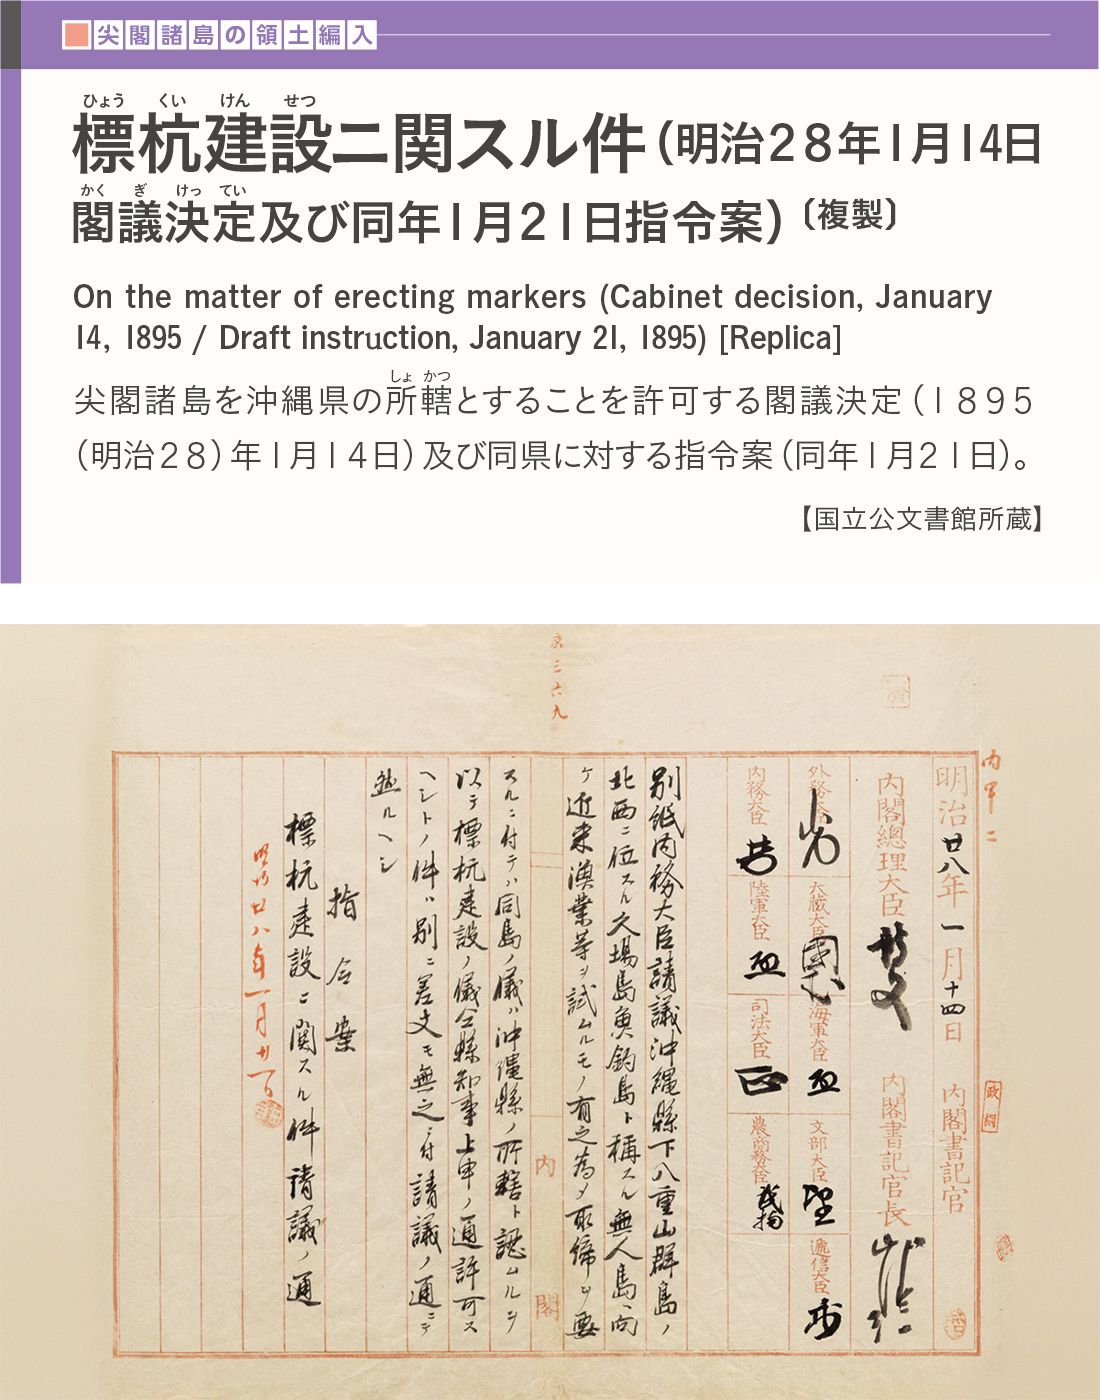 尖閣諸島の領土編入
ひょう くい けん せつ
標杭建設ニ関スル件(明治28年1月14日
かく ぎ けっ てい
閣議決定及び同年1月21日指令案)〔複製〕
On the matter of erecting markers (Cabinet decision, January
14, 1895 / Draft instruction, January 21, 1895) [Replica]
しょ かつ
尖閣諸島を沖縄県の所轄とすることを許可する閣議決定(1895
(明治28)年1月14日)及び同県に対する指令案(同年1月21日)。
【国立公文書館所蔵】
三六九
内甲二
明治廿八年一月十四日 内閣書記官
内閣總理大臣 内閣書記官長
外務大臣 大蔵大臣 海軍大臣 文部大臣 遞信大臣
内務大臣 陸軍大臣 司法大臣 農商務大臣
別紙内務大臣請議沖縄縣下八重山群島ノ
北西ニ位スル久場島魚釣島ト稱スル無人島ヘ向
ケ近来漁業等ヲ試ムルモノ有之為メ取締ヲ要
内閣
スルニ付テハ同島ノ儀ハ沖縄縣ノ所轄ト認ムルヲ
以テ標杭建設ノ儀仝縣知事上申ノ通許可ス
ヘシトノ件ハ別ニ差支モ無之ニ付請議ノ通ニテ
然ルヘシ
指令案
標杭建設ニ関スル件請議ノ通
明治廿八年一月廿一日